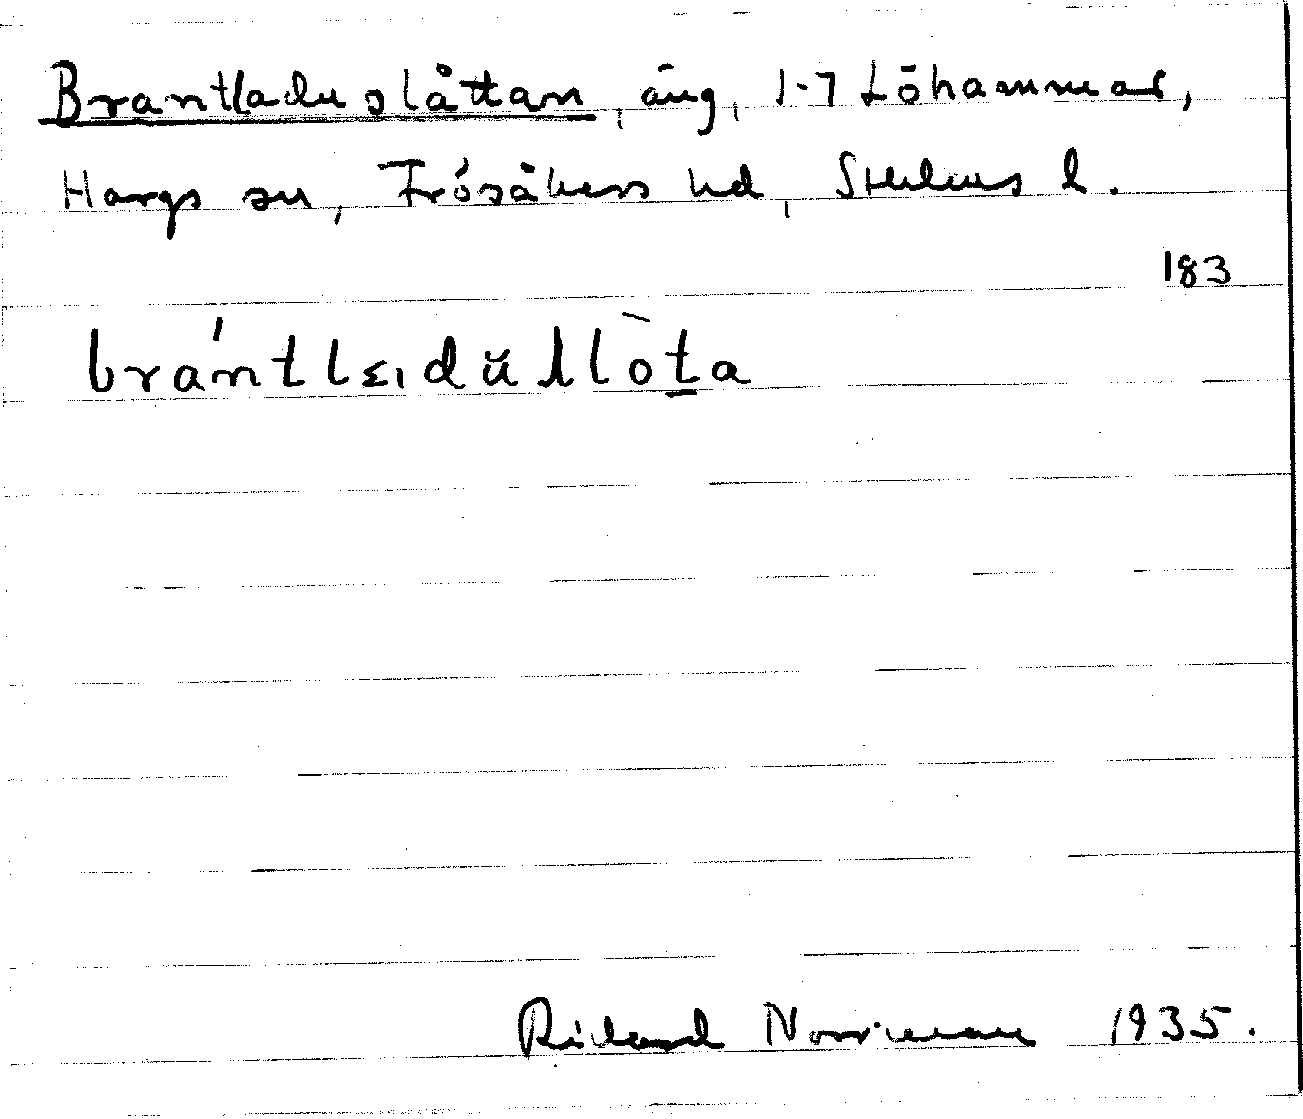 Brantladuslåttan, äng, 1-7 Löhammar,
Hargs sn, Frösåkers hd, Sthlms l.
183
brántlaıdŭllòta
Rickard Norrman 1935.